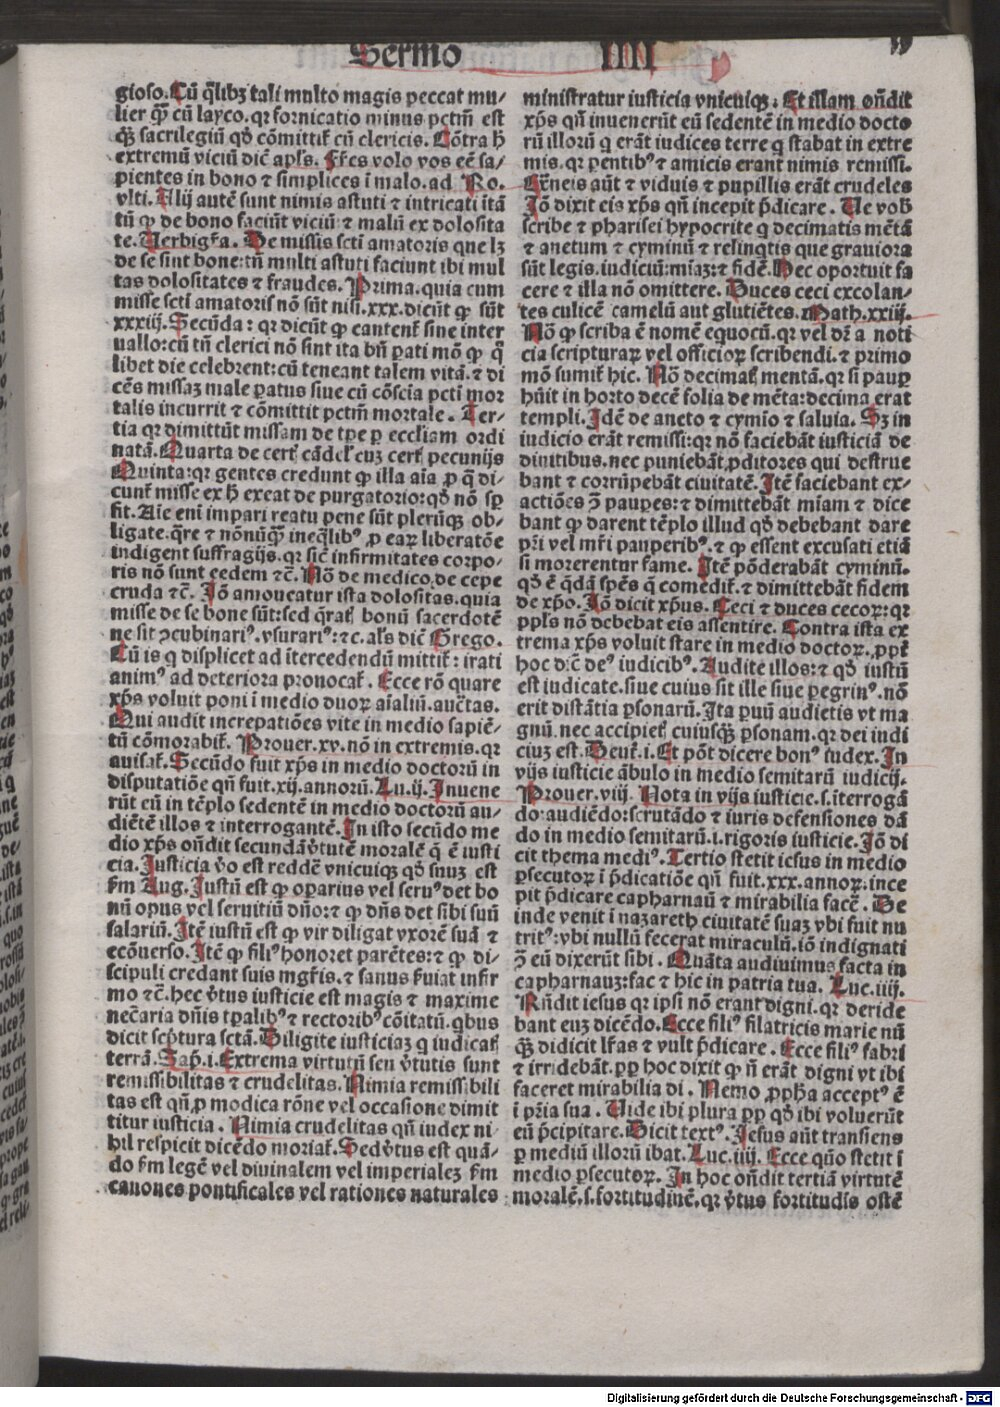 Sermo IIII
gioso. Cū q̄libꝫ tali multo magis peccat mu-
lier qꝫ cū layco. qꝛ fornicatio minus pctm̄ est
qꝫ sacrilegiū qḋ cōmittiť cū clericis. Cōtra ħ
extremū viciū dic̄ apl's. Fr̄es volo vos eē sa-
pientes in bono ⁊ simplices ī malo. ad Ro.
vlti. Alij autē sunt nimis astuti ⁊ intricati itā
tū ꝙ de bono faciūt viciū ⁊ malū ex dolosita
te. Verbigr̄a. De missis scti amatoris que lꝫ
de se sint bone: tn̄ multi astuti faciunt ibi mul
tas dolositates ⁊ fraudes. Prima. quia cum
misse scti amatoris nō sūt nisi .xxx. dicūt ꝙ sūt
xxxiij. Secūda: qꝛ dicūt ꝙ cantenť sine inter
uallo: cū tn̄ clerici nō sint ita bn̄ ꝑati mō ꝙ q̄
libet die celebrent: cū teneant talem vitā. ⁊ di
cēs missaꝫ male ꝑatus siue cū cōscia pcti mor
talis incurrit ⁊ cōmittit pctm̄ mortale. Ter-
tia qꝛ dimittūt missam de tꝑe ꝑ eccliam ordi
natā. Quarta de cerť cādel' cuꝫ cerť pecunijs
Quinta: qꝛ gentes credunt ꝙ illa aīa ꝓ q̄ di-
cunť misse ex ħ exeat de purgatorio: qḋ nō sꝑ
fit. Aie enī impari reatu pene sūt plerūqꝫ ob-
ligate. q̄re ⁊ nōnūqꝫ ineq̄libꝰ ꝓ eaꝝ liberatōe
indigent suffragijs. qꝛ sic̄ infirmitates corpo-
ris nō sunt eedem ⁊c̄. Nō de medico. de cepe
cruda ⁊c̄. Jō amoueatur ista dolositas. quia
misse de se bone sūt: sed q̄rať bonū sacerdotē
ne sit ꝯcubinariꝰ. vsurariꝰ: ⁊c. al's dic̄ Grego.
Cū is q displicet ad ītercedendū mittiť: irati
animꝰ ad deteriora prouocať. Ecce rō quare
xp̄s voluit poni ī medio duoꝝ aīaliū. auc̄tas.
Qui audit increpatiōes vite in medio sapiē-
tū cōmorabiť. Prouer. xv. nō in extremis. qꝛ
auisať. Secūdo fuit xp̄s in medio doctorū in
disputatiōe qn̄ fuit .xij. annorū. Lu. ij. Inuene
rūt eū in tēplo sedentē in medio doctorū au-
diētē illos ⁊ interrogantē. In isto secūdo me
dio xp̄s ondit secundā v̄tutē moralē q̄ ē iusti
cia. Justicia v̄o est reddē vnicuiqꝫ qḋ suuꝫ est
ẜm Aug. Justū est ꝙ oꝑarius vel seruꝰ det bo
nū opus vel seruitiū dn̄o: ⁊ ꝙ dn̄s det sibi suū
salariū. Itē iustū est ꝙ vir diligat vxorē suā ⁊
ecōuerso. Itē ꝙ filiꝰ honoret parētes: ⁊ ꝙ di-
scipuli credant suis mgr̄is. ⁊ sanus ẜuiat infir
mo ⁊c̄. hec v̄tus iusticie est magis ⁊ maxime
nec̄aria dn̄is tꝑalibꝰ ⁊ rectoribꝰ cōitatū. qbus
dicit scp̄tura sctā. Diligite iusticiaꝫ q iudicať
terrā. Sap̄. i. Extrema virtutū seu v̄tutis sunt
remissibilitas ⁊ crudelitas. Nimia remissibili
tas est qn̄ ꝓ modica rōne vel occasione dimit
titur iusticia. Nimia crudelitas qn̄ iudex ni-
hil respicit dicēdo moriať. Sed v̄tus est quā-
do ẜm legē vel diuinalem vel imperialeꝫ ẜm
canones pontificales vel rationes naturales
ministratur iusticia vnicuiqꝫ: Et illam ondit
xp̄s qn̄ inuenerūt eū sedentē in medio docto
rū illorū q erāt iudices terre q stabat in extre
mis. qꝛ ꝑentibꝰ ⁊ amicis erant nimis remissi.
Ex̄neis aūt ⁊ viduis ⁊ pupillis erāt crudeles
Jō dixit eis xp̄s qn̄ incepit p̄dicare. Ve vob̄
scribe ⁊ pharisei hypocrite q decimatis mētā
⁊ anetum ⁊ cyminū ⁊ relinqtis que grauiora
sūt legis. iudiciū: mīaꝫ: ⁊ fidē. Hec oportuit fa
cere ⁊ illa nō omittere. Duces ceci excolan-
tes culicē camelū aut glutiētes. Math. xxiij.
Nō ꝙ scriba ē nomē equocū. qꝛ vel dr̄ a noti
cia scripturaꝝ vel officioꝝ scribendi. ⁊ primo
mō sumiť hic. Nō decimať mentā. qꝛ si pauꝑ
hūit in horto decē folia de mēta: decima erat
templi. Idē de aneto ⁊ cymīo ⁊ saluia. Sꝫ in
iudicio erāt remissi: qꝛ nō faciebāt iusticiā de
diuitibus. nec puniebāt ꝓditores qui destrue
bant ⁊ corrūpebāt ciuitatē. Itē faciebant ex-
actiōes ꝯ̄ pauꝑes: ⁊ dimittebāt mīam ⁊ dice
bant ꝙ darent tēplo illud qḋ debebant dare
pr̄i vel mr̄i pauperibꝰ. ⁊ ꝙ essent excusati etiā
si morerentur fame. Itē pōderabāt cyminū.
qḋ ē q̄dā spēs q̄ comediť. ⁊ dimittebāt fidem
de xp̄o. Jō dicit xp̄us. Ceci ⁊ duces cecoꝝ: qꝛ
ppl's nō debebat eis assentire. Contra ista ex
trema xp̄s voluit stare in medio doctoꝝ. ꝓpť
hoc dic̄ deꝰ iudicibꝰ. Audite illos: ⁊ qḋ iustū
est iudicate. siue cuius sit ille siue ꝑegrinꝰ. nō
erit distātia ꝑsonarū. Ita ꝑuū audietis vt ma
gnū. nec accipieť cuiusqꝫ ꝑsonam. qꝛ dei iudi
ciuꝫ est. Deuť. i. Et pōt dicere bonꝰ iudex. In
vijs iusticie ābulo in medio semitarū iudicij.
Prouer. viij. Nota in vijs iusticie. s. īterrogā
do: audiēdo: scrutādo ⁊ iuris defensiones dā
do in medio semitarū. i. rigoris iusticie. Jō di
cit thema mediꝰ. Tertio stetit iesus in medio
ꝑsecutoꝝ ī p̄dicatiōe qn̄ fuit .xxx. annoꝝ. ince
pit p̄dicare capharnaū ⁊ mirabilia facē. De
inde venit ī nazareth ciuitatē suaꝫ vbi fuit nu
tritꝰ: vbi nullū fecerat miraculū. iō indignati
ꝯ̄ eū dixerūt sibi. Quāta audiuimus facta in
capharnauꝫ: fac ⁊ hic in patria tua. Luc. iiij.
Rn̄dit iesus qꝛ ipsi nō erant digni. qꝛ deride
bant euꝫ dicēdo. Ecce filiꝰ filatricis marie nū
qꝫ didicit lr̄as ⁊ vult p̄dicare. Ecce filiꝰ fabri
⁊ irridebāt. ꝓp hoc dixit ꝙ n̄ erāt digni vt ibi
faceret mirabilia di. Nemo ꝓpħa acceptꝰ ē
ī pr̄ia sua. Vide ibi plura ꝓp qḋ ibi voluerūt
eū p̄cipitare. Dicit textꝰ. Jesus aūt transiens
ꝑ mediū illorū ibat. Luc. iiij. Ecce quō stetit ī
medio ꝑsecutoꝝ. In hoc ondit tertiā virtutē
moralē. s. fortitudinē. qꝛ v̄tus fortitudīs ostē
Digitalisierung gefördert durch die Deutsche Forschungsgemeinschaft - DFG